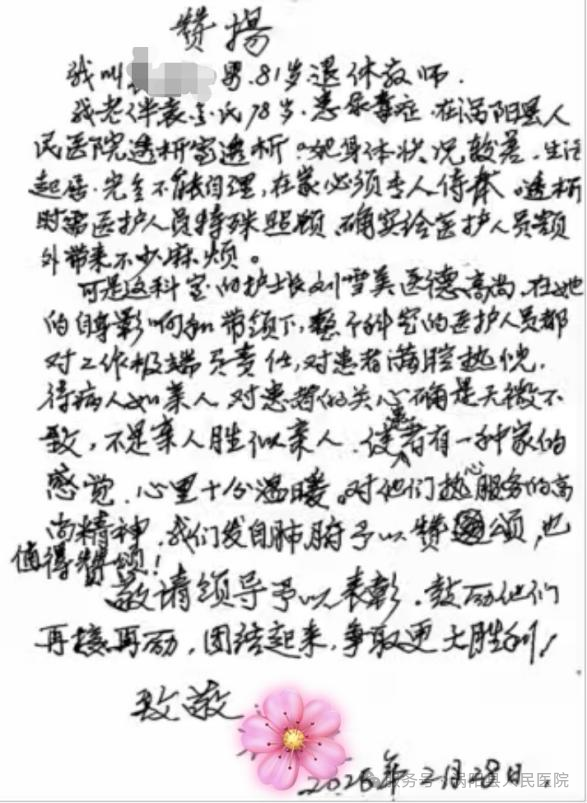 赞扬
我叫 男.81岁退休教师.
我老伴袁 氏78岁.患尿毒症.在涡阳县人
民医院透析室透析。她身体状况较差.生活
起居.完全不能自理,在家必须专人侍候.透析
时需医护人员特殊照顾.确实给医护人员额
外带来不少麻烦。
可是这科室的护士长刘雪美医德高尚.在她
的自身影响和带领下,整个科室的医护人员都
对工作极端负责任,对患者满腔热忱.
待病人如亲人.对患者的关心确是无微不
致,不是亲人胜似亲人.使患者有一种家的
感觉.心里十分温暖。对他们热心服务的高
尚精神.我们发自肺腑予以赞颂,也
值得赞颂!
敬请领导予以表彰.鼓励他们
再接再励,团结起来,争取更大胜利!
致敬
2026年2月28日.
服务号·涡阳县人民医院